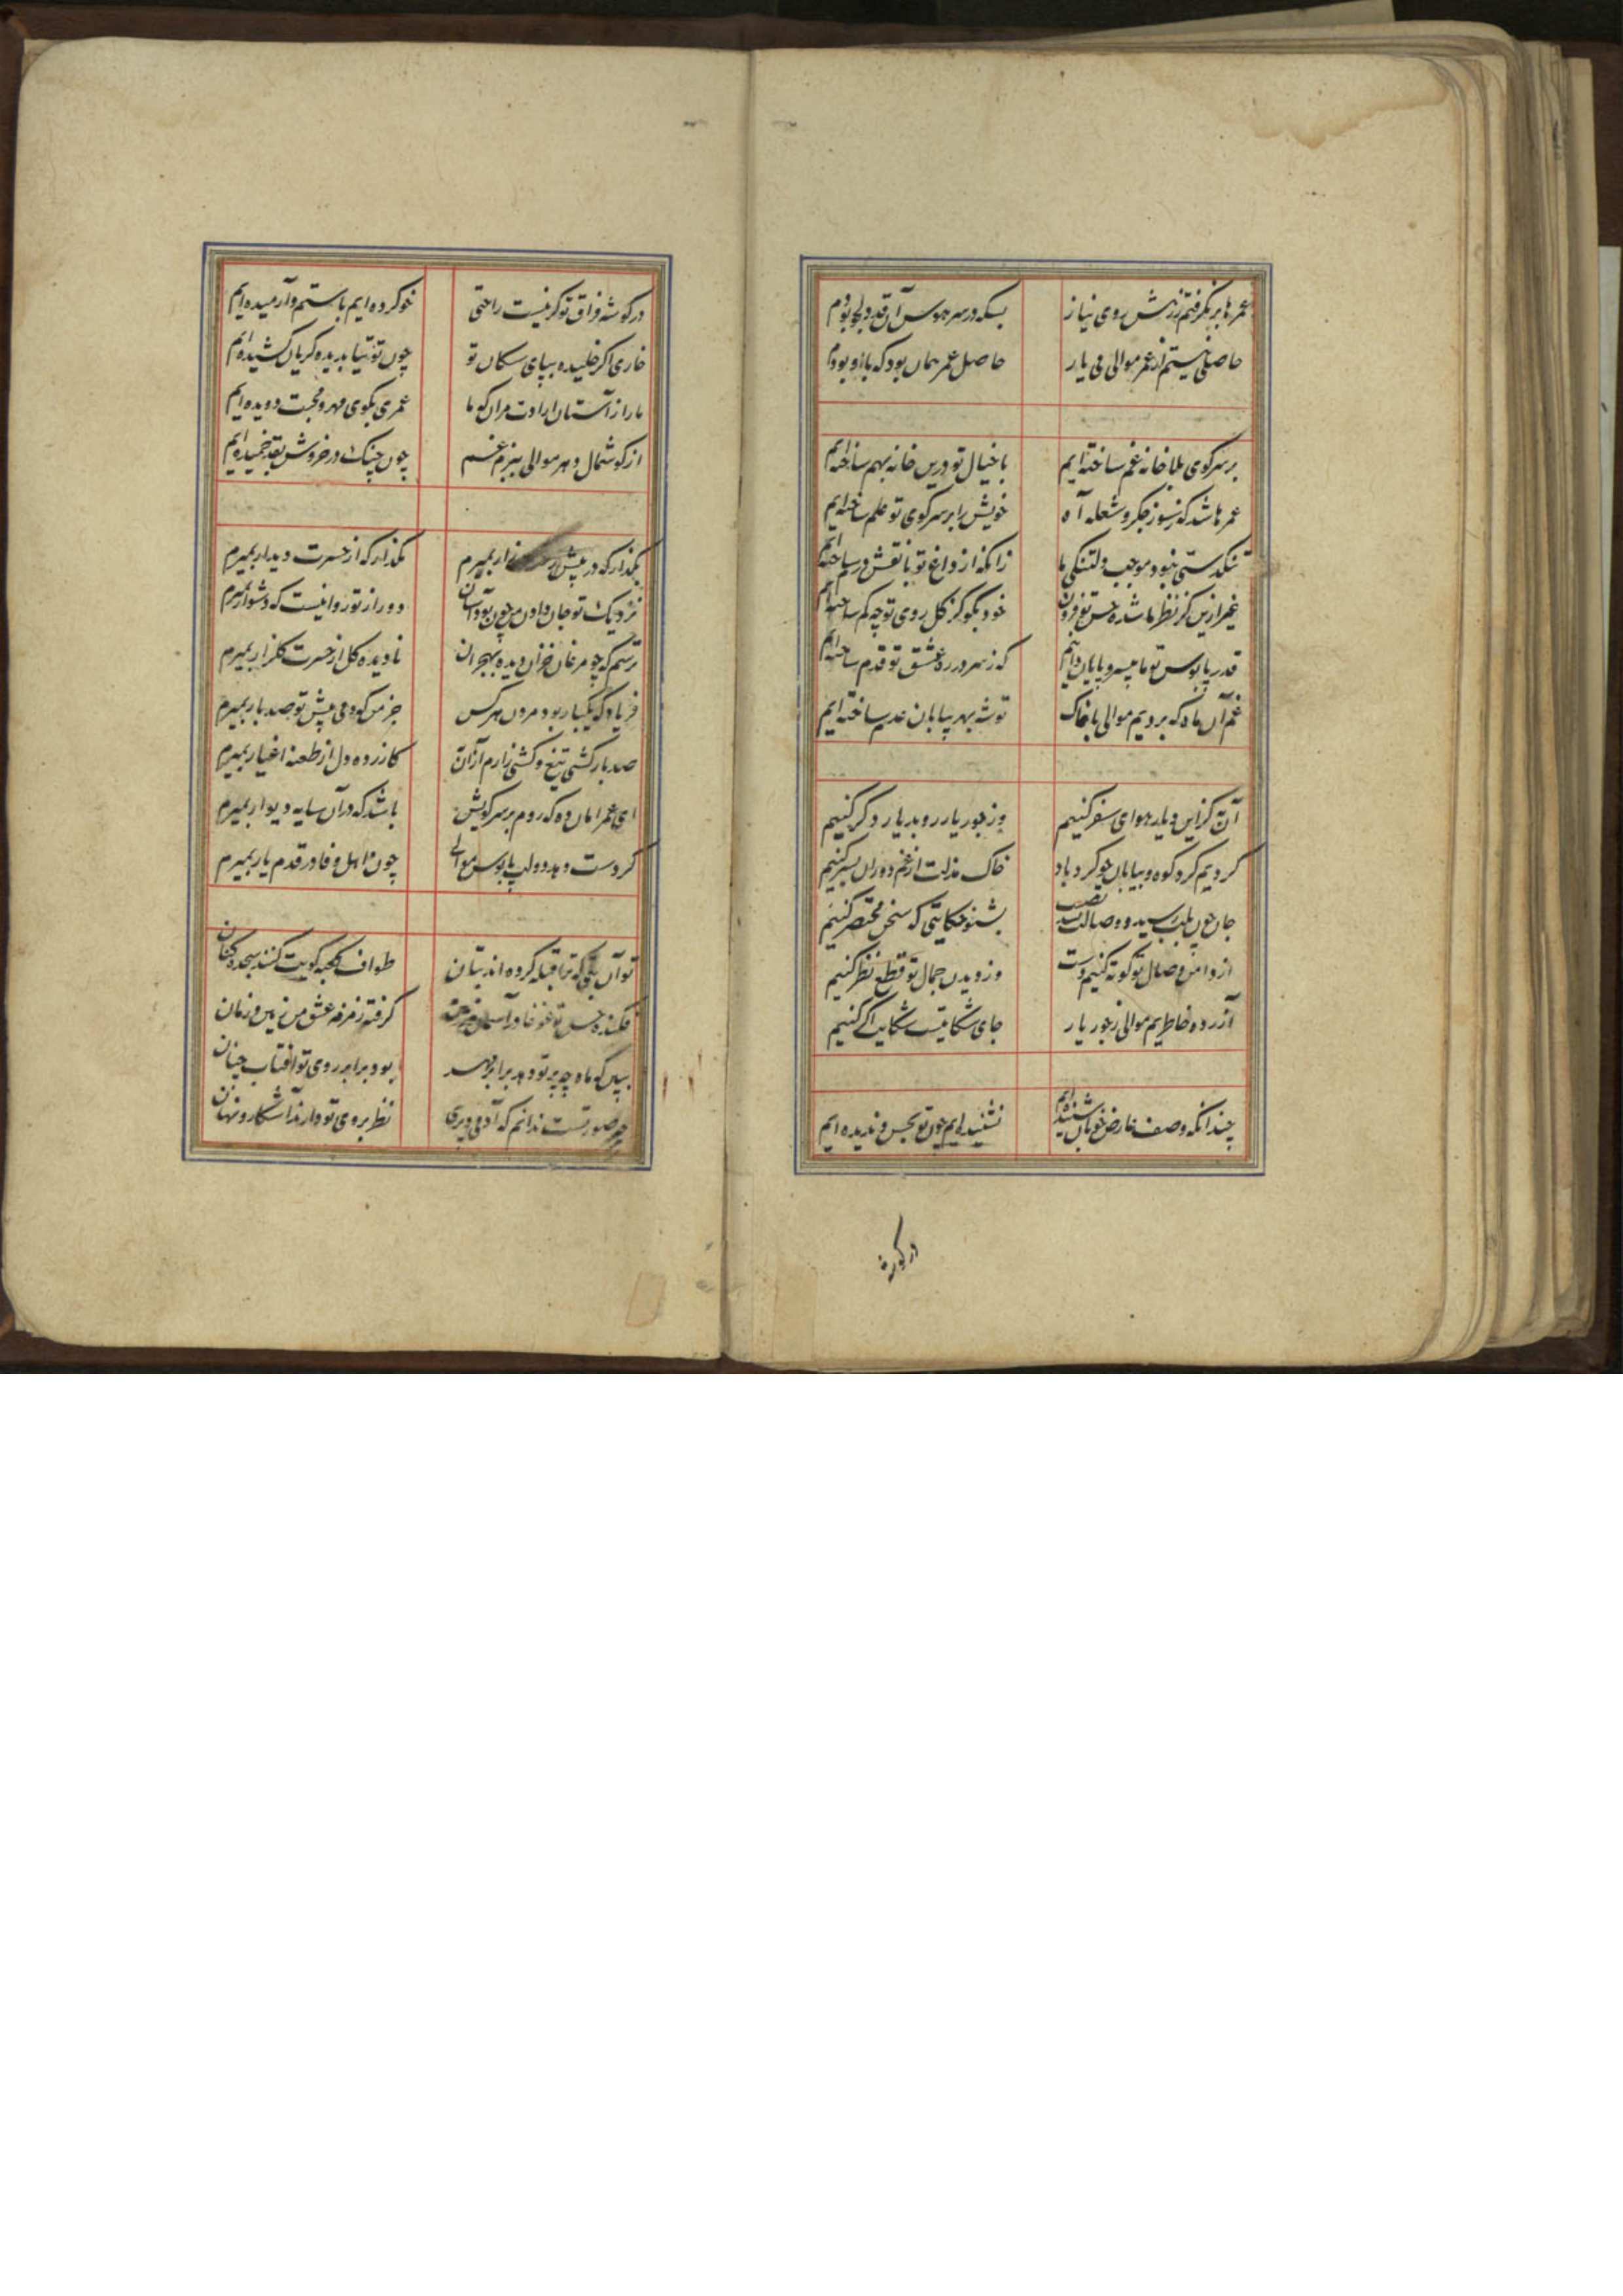 عمرها بر نگرفتم ز رهش روی نیاز بسکه در سر هوس آن قد دلجو بودم
حاصلی نیستم از عمر موالی بی یار حاصل عمر همان بود که با او بودم
بر سر کوی بلا خانه غم ساخته ایم با خیال تو درین خانه بهم ساخته ایم
عمرها شد که ز سوز جگر و شعله آه خویش را بر سر کوی تو علم ساخته ایم
تنکدستی نبود موجب دلتنکی ما زانکه از داغ تو با نقش درم ساخته ایم
غیر ازین کز نظر ما شده حسن تو فزون خود بگو کز گل روی تو چه کم ساخته ایم
قدر پابوس تو ما بی سر و پایان دانیم که ز سر در ره عشق تو قدم ساخته ایم
غم آن ماه که بردیم موالی با خاک توشه بهر بیابان عدم ساخته ایم
آن به کزین دیار هوای سفر کنیم وز جور یار رو بدیار دگر کنیم
کردیم گرد کوه و بیابان چو گردباد خاک مذلت از غم دوران بسر کنیم
جان چون بلب رسید و وصالت نشد نصیب بشنو حکایتی که سخن مختصر کنیم
از دامن وصال تو کوته کنیم دست وز دیدن جمال تو قطع نظر کنیم
آزرده خاطریم موالی ز جور یار جای شکایتست شکایت اگر کنیم
چندانکه وصف عارض خوبان شنیده ایم نشنیده ایم چون تو بحسن و ندیده ایم
در گوشه
در گوشه فراق تو گر نیست راحتی خو کرده ایم با ستم و آرمیده ایم
خاری اگر خلیده بپای سکان تو چون توتیا بدیده گریان کشیده ایم
ما را ز آستان ارادت مران که ما عمری بکوی مهر و محبت دویده ایم
از گوشمال دهر موالی ببزم غم چون چنگ در خروش بقد خمیده ایم
بگذار که در پیش زار بمیرم مگذار که از حسرت دیدار بمیرم
نزدیک تو جان دادن من چون بود آسان دور از تو روا نیست که دشوار بمیرم
ترسم که چو مرغان خزان دیده بهجران نادیده گل از حسرت گلزار بمیرم
فریاد که یکبار بود مردن هر کس جز من که دمی پیش تو صد بار بمیرم
صد بار کشی تیغ و کشی زارم از آن به کازرده دل از طعنه اغیار بمیرم
ای عمر امان ده که روم بر سر کویش باشد که در آن سایه دیوار بمیرم
گر دست دهد دولت پابوس موالی چون اهل وفا در قدم یار بمیرم
تو آن بتی که ترا قبله کرده اند بتان طواف کعبه کویت کنند سجده کنان
فکنده حسن تو غوغا در آسمان گرفته زمزمه عشق من زمین و زمان
ببین که ماه چه پرتو دهد برابر مهر بود برابر روی تو آفتاب چنان
چه صورتست ندانم که آدمی و پری نظر بروی تو دارند آشکار و نهان